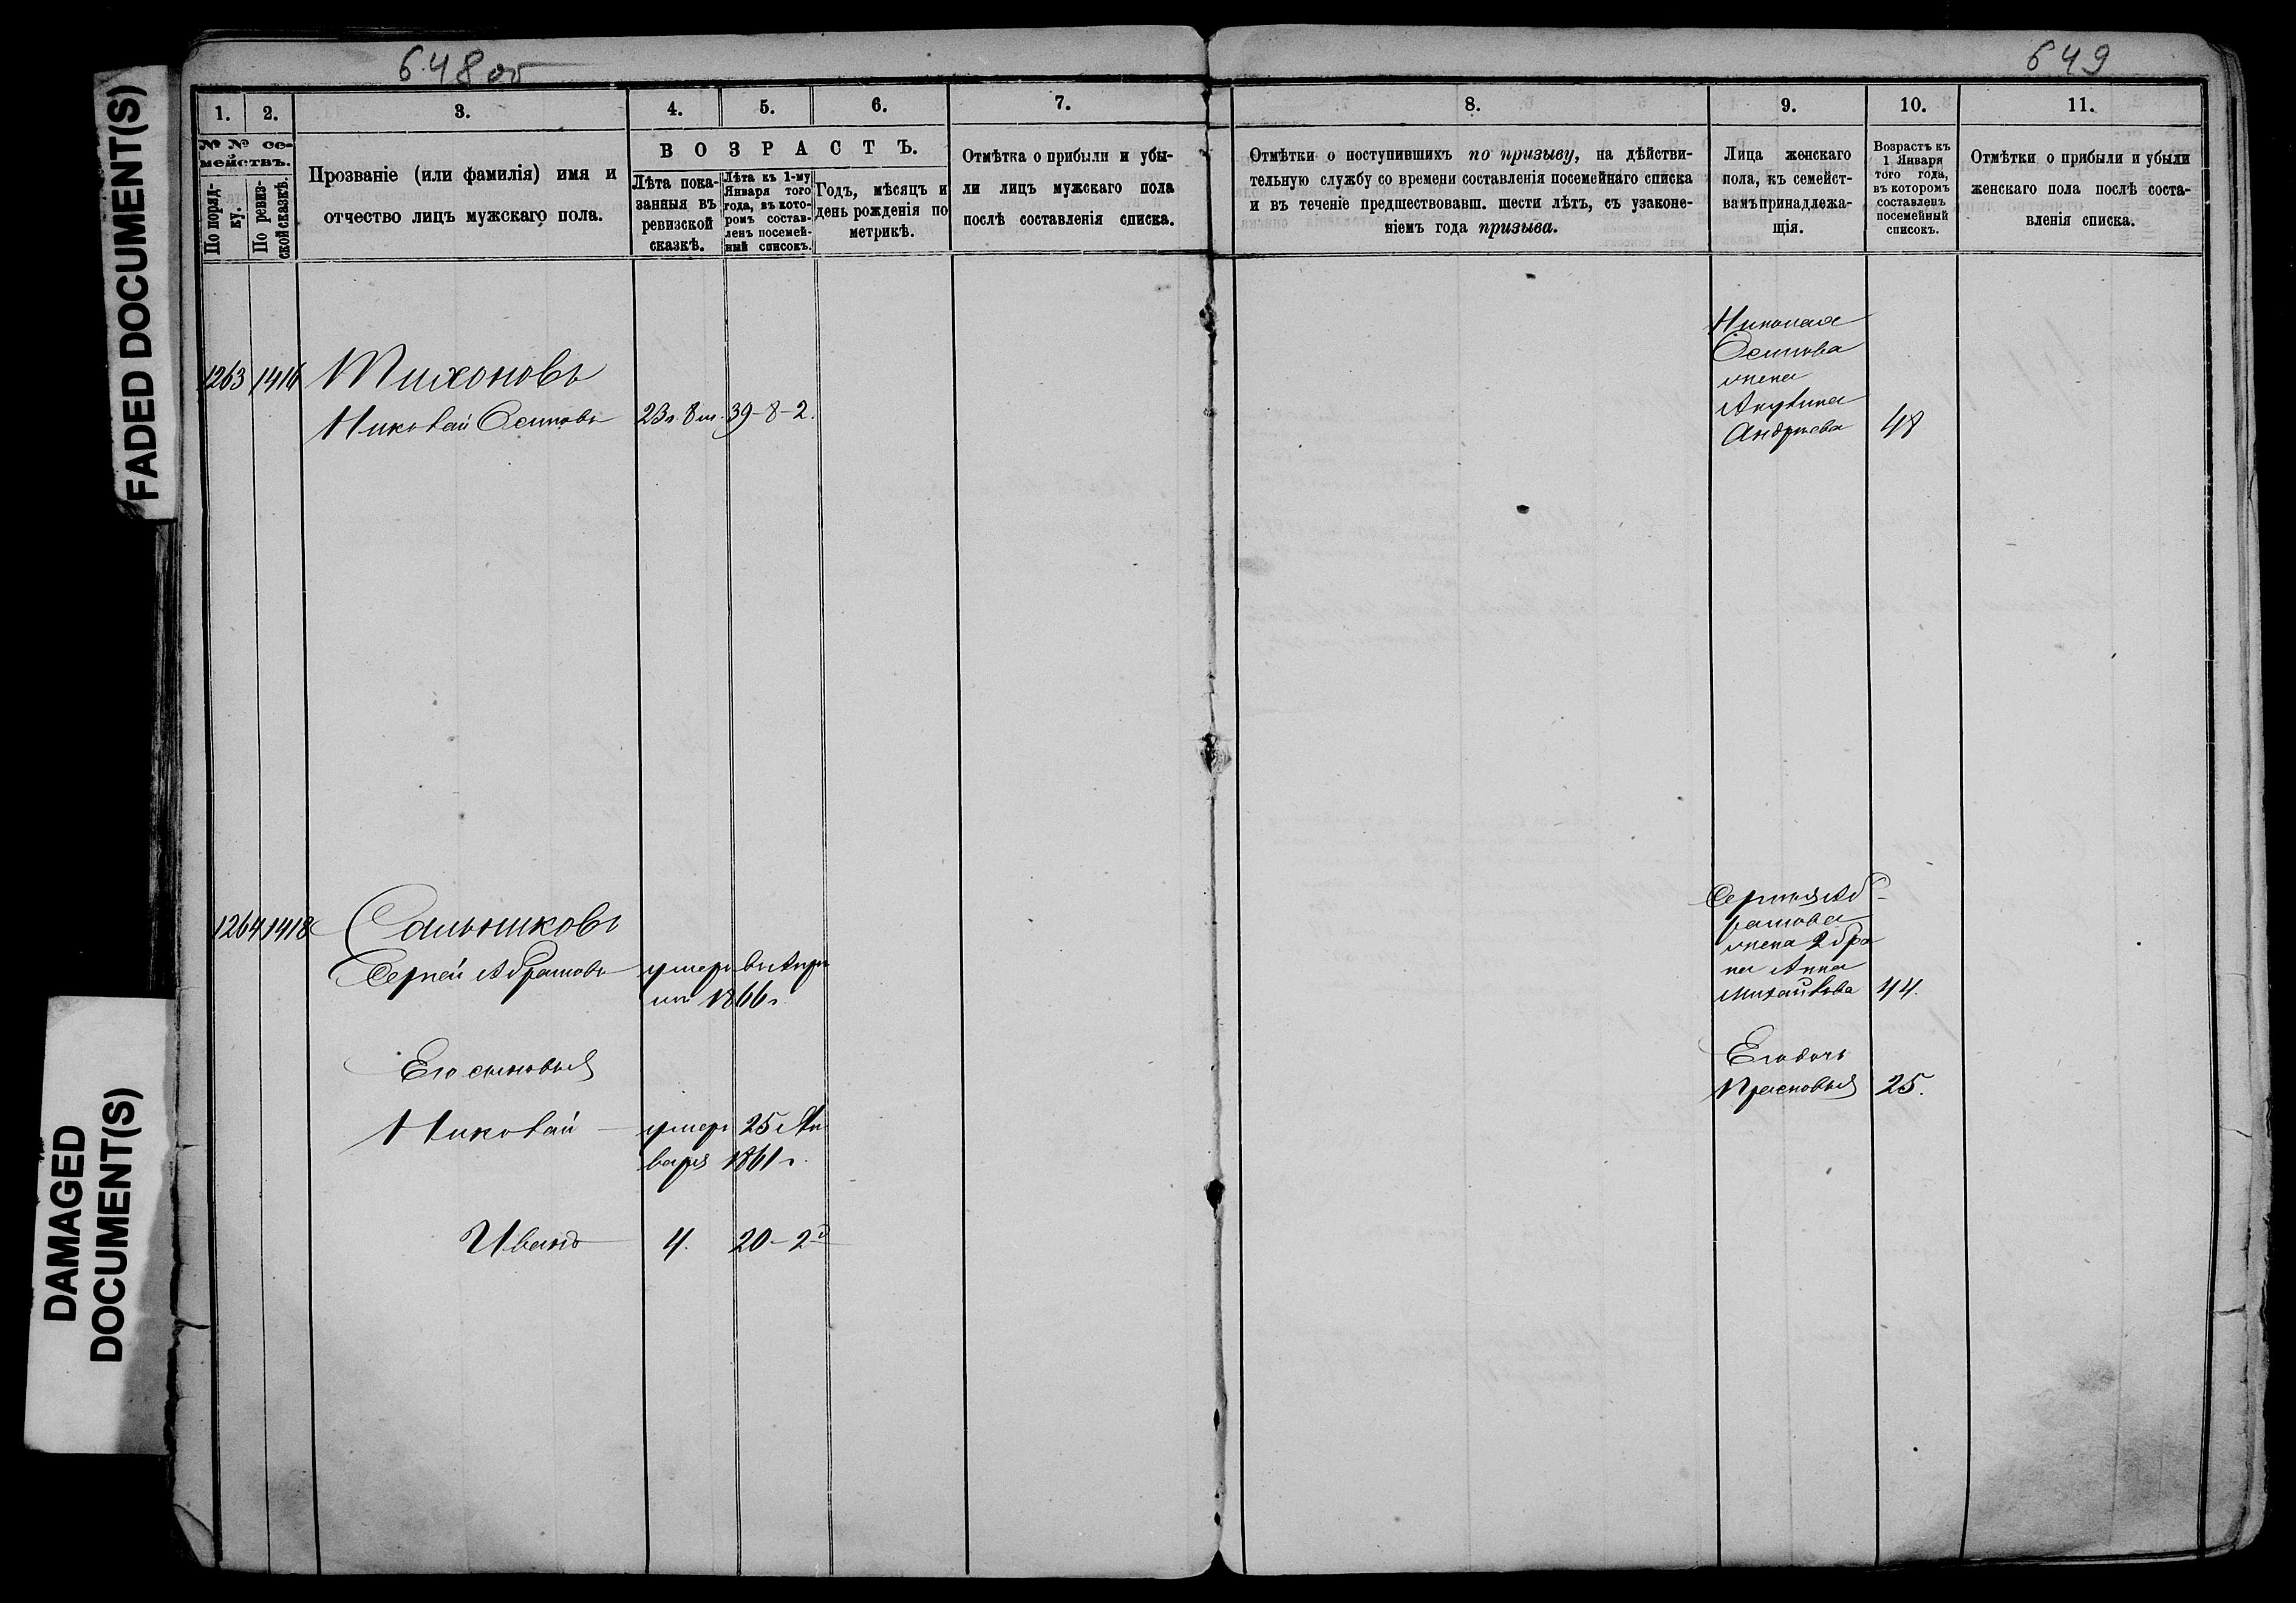 FADED DOCUMENT(S)
DAMAGED
DOCUMENT(S)
648 об
649
1.
2.
3.
4.
5.
6.
7.
8.
9.
10.
11.
№ № се-
мействъ.
По поряд-
ку.
По ревиз-
ской сказкѣ.
Прозваніе (или фамилія) имя и
отчество лицъ мужскаго пола.
ВОЗРАСТЪ.
Лѣта пока-
занныя въ
ревизской
сказкѣ.
Лѣта къ 1-му
Января того
года, въ кото-
ромъ состав-
ленъ посемей-
ный списокъ.
Годъ, мѣсяцъ и
день рожденія по
метрикѣ.
Отмѣтка о прибыли и убы-
ли лицъ мужскаго пола
послѣ составленія списка.
Отмѣтки о поступившихъ по призыву, на дѣйстви-
тельную службу со времени составленія посемейнаго списка
и въ теченіе предшествовавш. шести лѣтъ, съ узаконе-
ніемъ года призыва.
Лица женскаго
пола, къ семейст-
вамъ принадлежа-
щія.
Возрастъ къ
1 Января
того года,
въ которомъ
составленъ
посемейный
списокъ.
Отмѣтки о прибыли и убыли
женскаго пола послѣ соста-
вленія списка.
1263 1416 Тихоновъ
Николай Осиповъ 23 г. 8 м. 39-8-2.
Николая
Осипова
жена
Акулина
Андреева 48
1264 1418
Сергей Абрамовъ умеръ въ Апре
ле 1866 г.
Его сыновья
Николай умеръ 25 Ян
варя 1861 г.
Иванъ 4. 20-2
Сергея Аб-
рамова
жена 2 бра
ка Анна
Михайлова 44.
Его дочь
Прасковья 25.